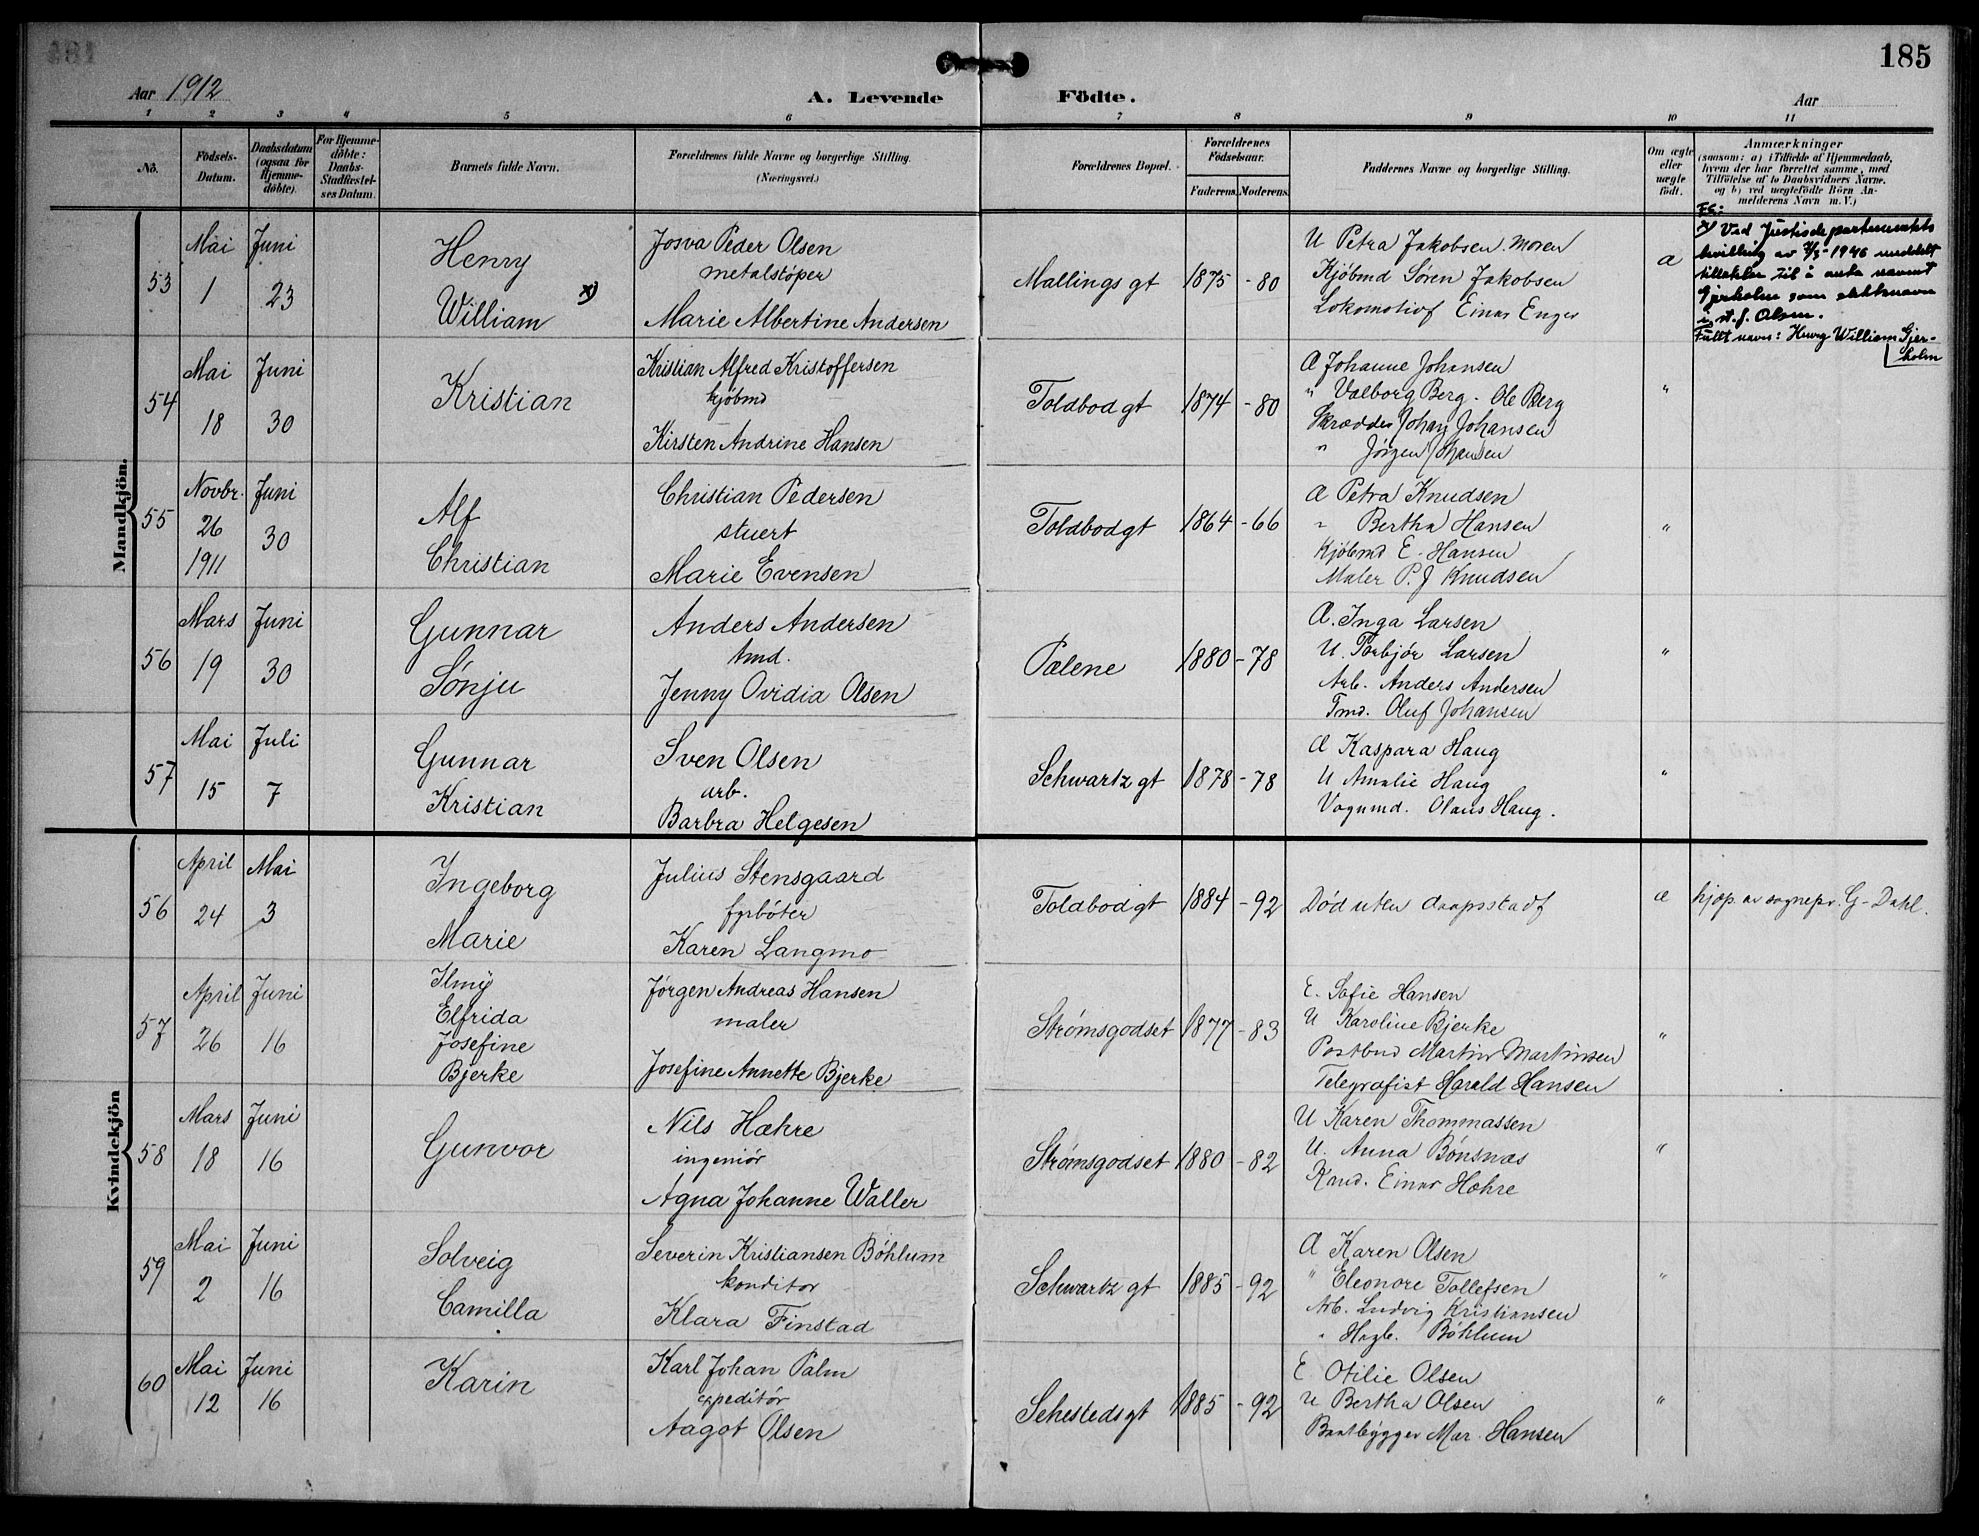 185
Aar 1912
A. Levende Födte.
Aar
1 2 3 4 5 6 7 8 9 10 11
No.
Födsels-
Datum.
Daabsdatum
(ogsaa for
Hjemme-
döbte).
For Hjemme-
döbte:
Daabs-
Stadfæstel-
ses Datum.
Barnets fulde Navn.
Forældrenes fulde Navne og borgerlige Stilling.
(Næringsvei.)
Forældrenes Bopæl.
Forældrenes
Födselsaar.
Faderens. Moderens.
Faddernes Navne og borgerlige Stilling.
Om ægte
eller
uægte
födt.
Anmærkninger
(saasom: a) i Tilfælde af Hjemmedaab,
hvem der har forrettet samme, med
Tilföielse af to Daabsvidners Navne,
og b) ved uægtefödte Börn An-
melderens Navn m. V.)
Mandkjön.
53
Mai
1
Juni
23
Henry
William x)
Josva Peder Olsen
metalstøper
Marie Albertine Andersen
Mallings gt
1875 - 80
U Petra Jakobsen. Moren
Kjöbmd Sören Jakobsen
Lokomotivf Einar Enger
æ
FS:
x) Ved Justisdepartementets
bevilling av 7/5-1946 meddelt
tillatelse til å anta navnet
Gjerholm som slektsnavn
i st. f. Olsen.
Fullt navn: Henry William Gjer-
holm
54
Mai
18
Juni
30
Kristian
Kristian Alfred Kristoffersen
kjöbmd
Kirsten Andrine Hansen
Toldbodgt
1874 - 80
Æ Johanne Johansen
" Valborg Berg. Ole Berg
Skrædder Johan Johansen
" Jörgen Hansen
"
55
Novbr.
26
1911
Juni
30
Alf
Christian
Christian Pedersen
stuert
Marie Evensen
Toldbodgt
1864 - 66
Æ Petra Knudsen
" Bertha Hansen
Kjöbmd E. Hansen
Maler P. J Knudsen
"
56
Mars
19
Juni
30
Gunnar
Sönju
Anders Andersen
tmd.
Jenny Ovidia Olsen
Pælene
1880 - 78
Æ. Inga Larsen
U. Torbjør Larsen
Arb. Anders Andersen
Tmd. Oluf Johansen
"
57
Mai
15
Juli
7
Gunnar
Kristian
Sven Olsen
arb.
Barbra Helgesen
Schwartz gt
1878 - 78
Æ Kaspara Haug
U Amalie Haug
Vognmd. Olaus Haug.
"
Kvindekjön
56
April
24
Mai
3
Ingeborg
Marie
Julius Stensgaard
fyrböter
Karen Langmo
Toldbodgt
1884 - 92
Död uten daapsstadf
æ
hjdp. av sognepr. G. Dahl.
57
April
26
Juni
16
Ilmy
Elfrida
Josefine
Bjerke
Jørgen Andreas Hansen
maler
Josefine Annette Bjerke
Strømsgodset
1877 - 83
E. Sofie Hansen
U Karoline Bjerke
Postbud Martin Martinsen
Telegrafist Harald Hansen
"
58
Mars
18
Juni
16
Gunvor
Nils Hæhre
ingeniör
Agna Johanne Waller
Strømsgodset
1880 - 82
U Karen Thommassen
U. Anna Bönsnæs
Kand. Einar Hæhre
"
59
Mai
2
Juni
16
Solveig
Camilla
Severin Kristiansen Böhlum
konditor
Klara Finstad
Schwartz gt
1885 - 92
Æ Karen Olsen
" Eleonore Tollefsen
Arb. Ludvig Kristiansen
" Hagb. Böhlum
"
60
Mai
12
Juni
16
Karin
Karl Johan Palm
expeditör
Aagot Olsen
Sehestedsgt
1885 - 92
E Otilie Olsen
U Bertha Olsen
Baatbygger Mar. Hansen
"